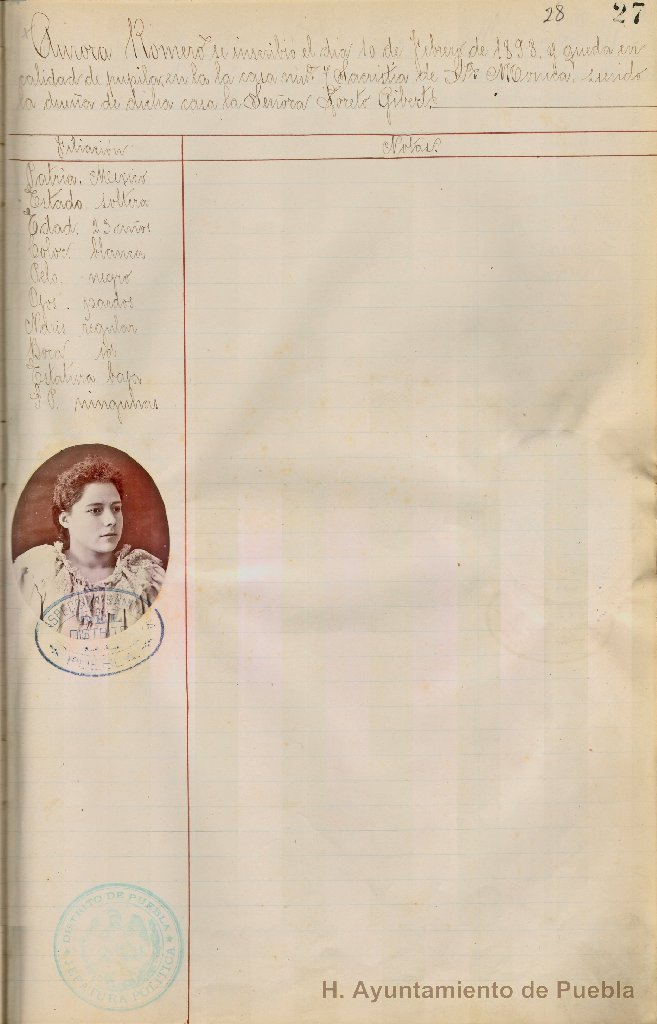 28 27
Aurora Romero se inscribió el dia 10 de Febrero de 1898. y queda en
calidad de pupila, en la la casa num 7 Sacristia de Sta Monica, siendo
la dueña de dicha casa la Señora Loreto Gibert.
Filiación
Notas.
Patria. Mexico
Estado soltera
Edad. 23 años
Color. blanca
Pelo. negro
Ojos. pardos
Naris regular
Boca id
Estatura baja
S. P. ningunas
DISTRITO DE PUEBLA
JEFATURA POLITICA
H. Ayuntamiento de Puebla